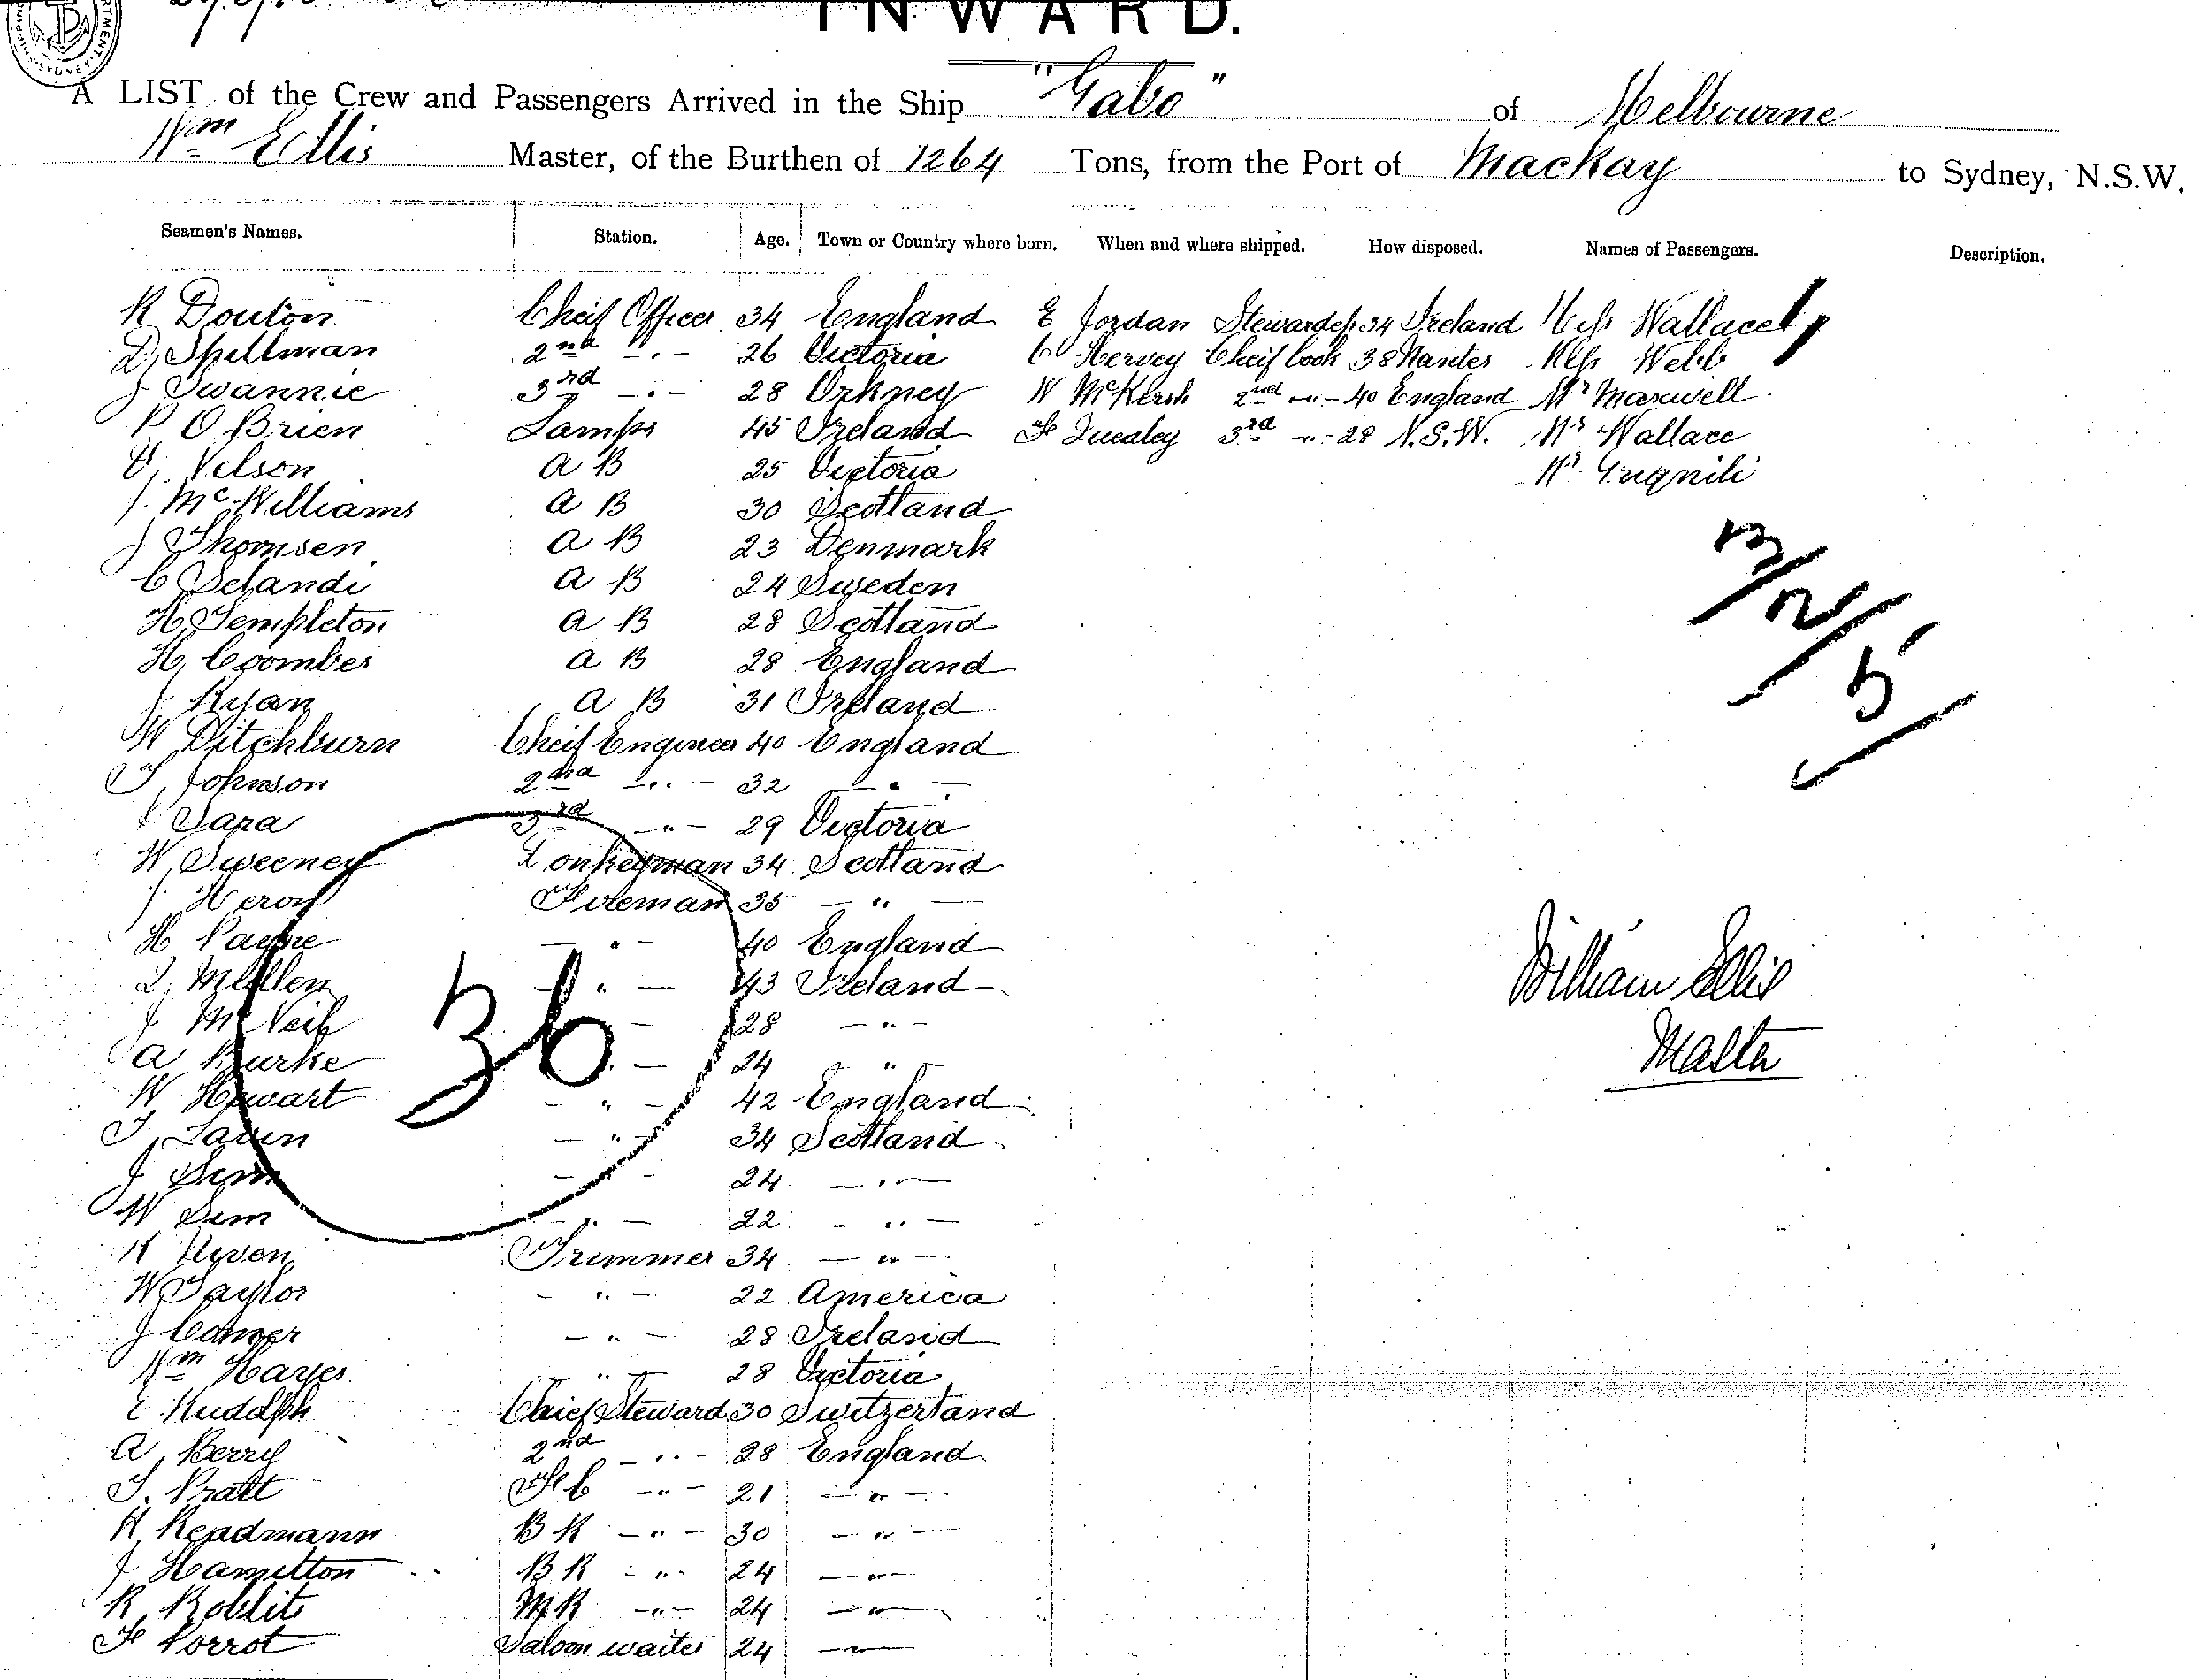 INWARD.
A LIST of the Crew and Passengers Arrived in the Ship "Gabo" of Melbourne
Wm Ellis Master, of the Burthen of 1264 Tons, from the Port of Mackay to Sydney, N.S.W.
Seamen's Names. Station. Age. Town or Country where born. When and where shipped. How disposed. Names of Passengers. Description.
R Douton Cheif Officer 34 England E Jordan Stewardess 34 Ireland Miss Wallace
D Spillman 2nd -"- 26 Victoria C Hervey Cheif Cook 38 Nantes Miss Webb
J Swannie 3rd -"- 28 Orkney W McKersh 2nd -"- 40 England Mr Maxwell
P O Brien Lamps 45 Ireland F Quealey 3rd -"- 28 N.S.W. Mr Wallace
V. Nelson A B 25 Victoria Mr
J. McWilliams A B 30 Scotland
J Thomsen A B 23 Denmark
C Selandi A B 24 Sweden
H Templeton A B 28 Scotland
H, Coombes A B 28 England
J Ryan A B 31 Ireland
W Ditchburn Cheif Engineer 40 England
T, Johnson 2nd -"- 32 - " -
Sara 3rd -"- 29 Victoria
W Sweeney Donkeyman 34 Scotland
J. Heron Fireman 35 - " -
H Payne - " - 40 England
Mullen - " - 43 Ireland
J McNeil - 28 - " -
A Burke - 24 - " -
W Hewart - " - 42 England
T, Lavin - " - 34 Scotland
J Sim - " - 24 - " -
W Sim - " - 22 - " -
Niven Trimmer 34 - " -
W Taylor - " - 22 America
J Comer - " - 28 Ireland
Wm Hayes " - 28 Victoria
E Rudolph Chief Steward 30 Switzerland
A, Berry 2nd -"- 28 England
T. Pratt F C -"- 21 - " -
H, Readmann B R -"- 30 - " -
J Hamilton B R -"- 24 - " -
R, Roblits M R -"- 24 - " -
F Porrot Saloon waiter 24 - " -
36
13/2/5
William Ellis
Master